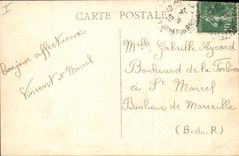 CARTE POSTALE
Bonjour affectueux
Vincent et Muriel
Melle Gabrielle Aycard
Boulevard de la
à St Marcel
Banlieue de Marseille
(B-du-R)